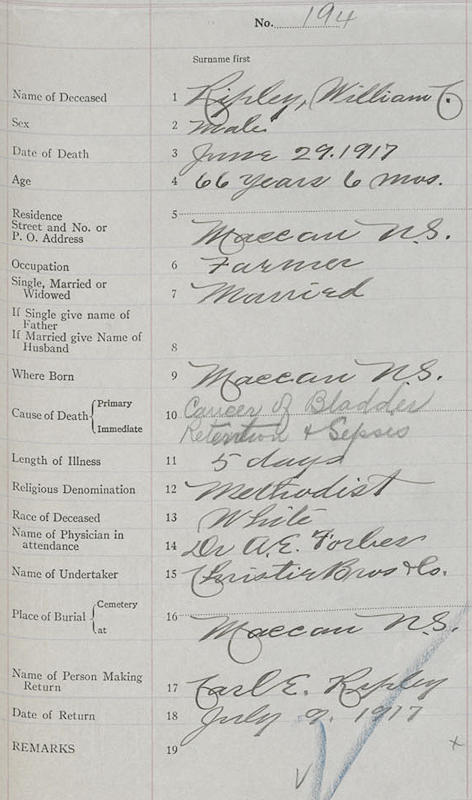 No. 194
Surname first
Name of Deceased 1 Ripley, William C.
Sex 2 Male
Date of Death 3 June 29. 1917
Age 4 66 Years 6 Mos.
Residence 5
Street and No. or
P. O. Address Maccan N.S.
Occupation 6 Farmer
Single, Married or
Widowed 7 Married
If Single give name of
Father
If Married give Name of
Husband 8
Where Born 9 Maccan N.S.
Cause of Death { Primary 10 Cancer of Bladder
Immediate Retention & Sepsis
Length of Illness 11 5 days
Religious Denomination 12 Methodist
Race of Deceased 13 White
Name of Physician in
attendance 14 Dr A.E. Forbes
Name of Undertaker 15 Christie Bros & Co.
Place of Burial { Cemetery 16
at Maccan N.S.
Name of Person Making
Return 17 Carl E. Ripley
Date of Return 18 July 9. 1917
REMARKS 19